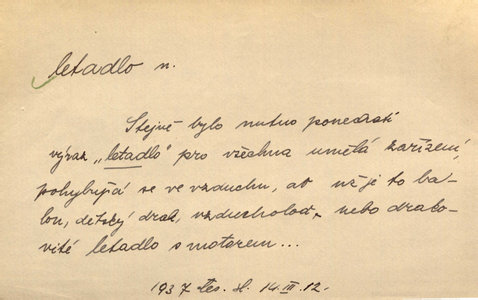 letadlo n.
Stejně bylo nutno ponechati
výraz „letadlo" pro všechna umělá zařízení,
pohybující se ve vzduchu, ať už je to ba-
lon, dětský drak, vzducholoď, nebo drako-
vité letadlo s motorem...
1937 Čes. sl. 14.III.12.